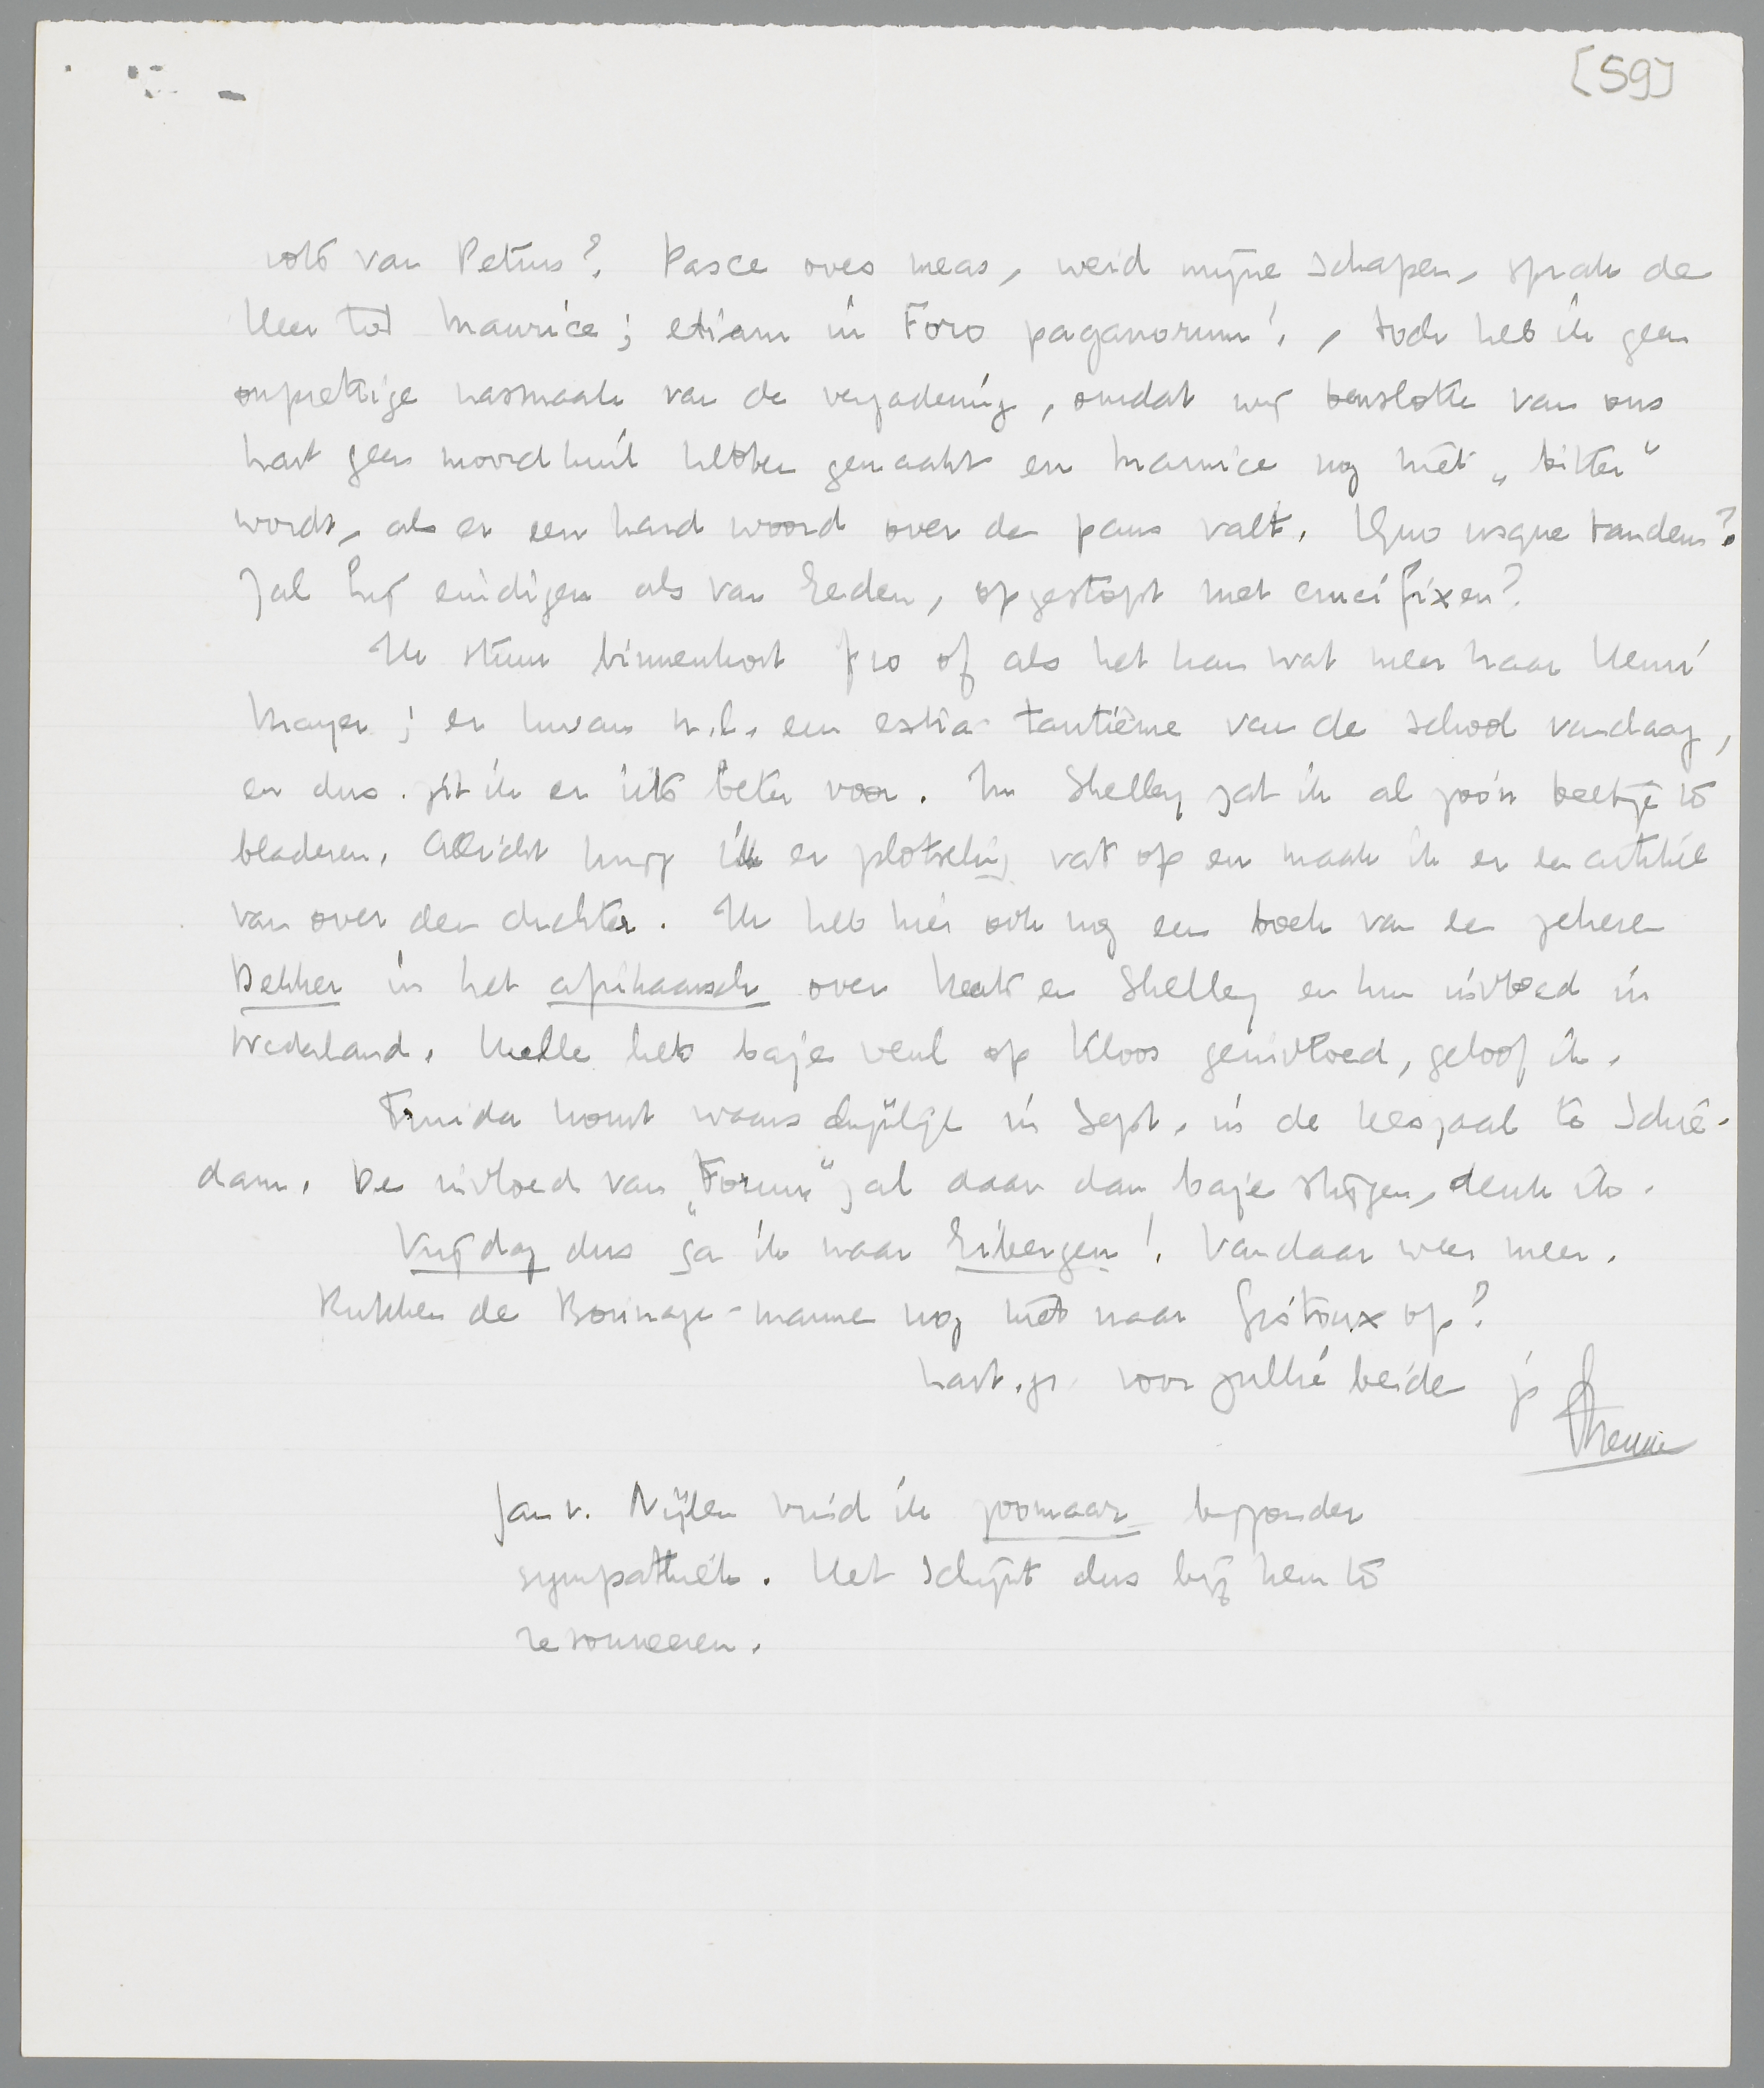 [59]
volk van Petrus? Pasce oves meas, weid mijne schapen, sprak de
Heer tot Maurice; etiam in Foro paganorum!, toch heb ik geen
onprettige nasmaak van de vergadering, omdat wij tenslotte van ons
hart geen moordkuil hebben gemaakt en Maurice nog niet „bitter"
wordt, als er een hard woord over de paus valt. Quo usque tandem?
Zal hij eindigen als van Eeden, opgestopt met crucifixen?
Ik stuur binnenkort f 10 of als het kan wat meer naar Henri
Mayer; er kwam n.l. een extra tantième van de school vandaag,
en dus zit ik er iets beter voor. In Shelley zat ik al zoo'n beetje te
bladeren. Allicht krijg ik er plotseling vat op en maak ik er een artikel
van over den dichter. Ik heb hier ook nog een boek van een zekeren
Dekker in het afrikaansch over Keats en Shelley en hun invloed in
Nederland. Hulle heb baje veul op Kloos geinvloed, geloof ik.
Truida komt waarschijnlijk in Sept. in de leeszaal te Schie-
dam. De invloed van „Forum" zal daar dan baje stijgen, denk ik.
Vrijdag dus ga ik naar Eibergen! Vandaar weer meer.
Rukken de Borinage-mannen nog niet naar Gistoux op?
hart. gr. voor jullie beiden je
Menno
Jan v. Nijlen vind ik zoomaar bijzonder
sympathiek. Het schijnt dus bij hem te
resonneeren.